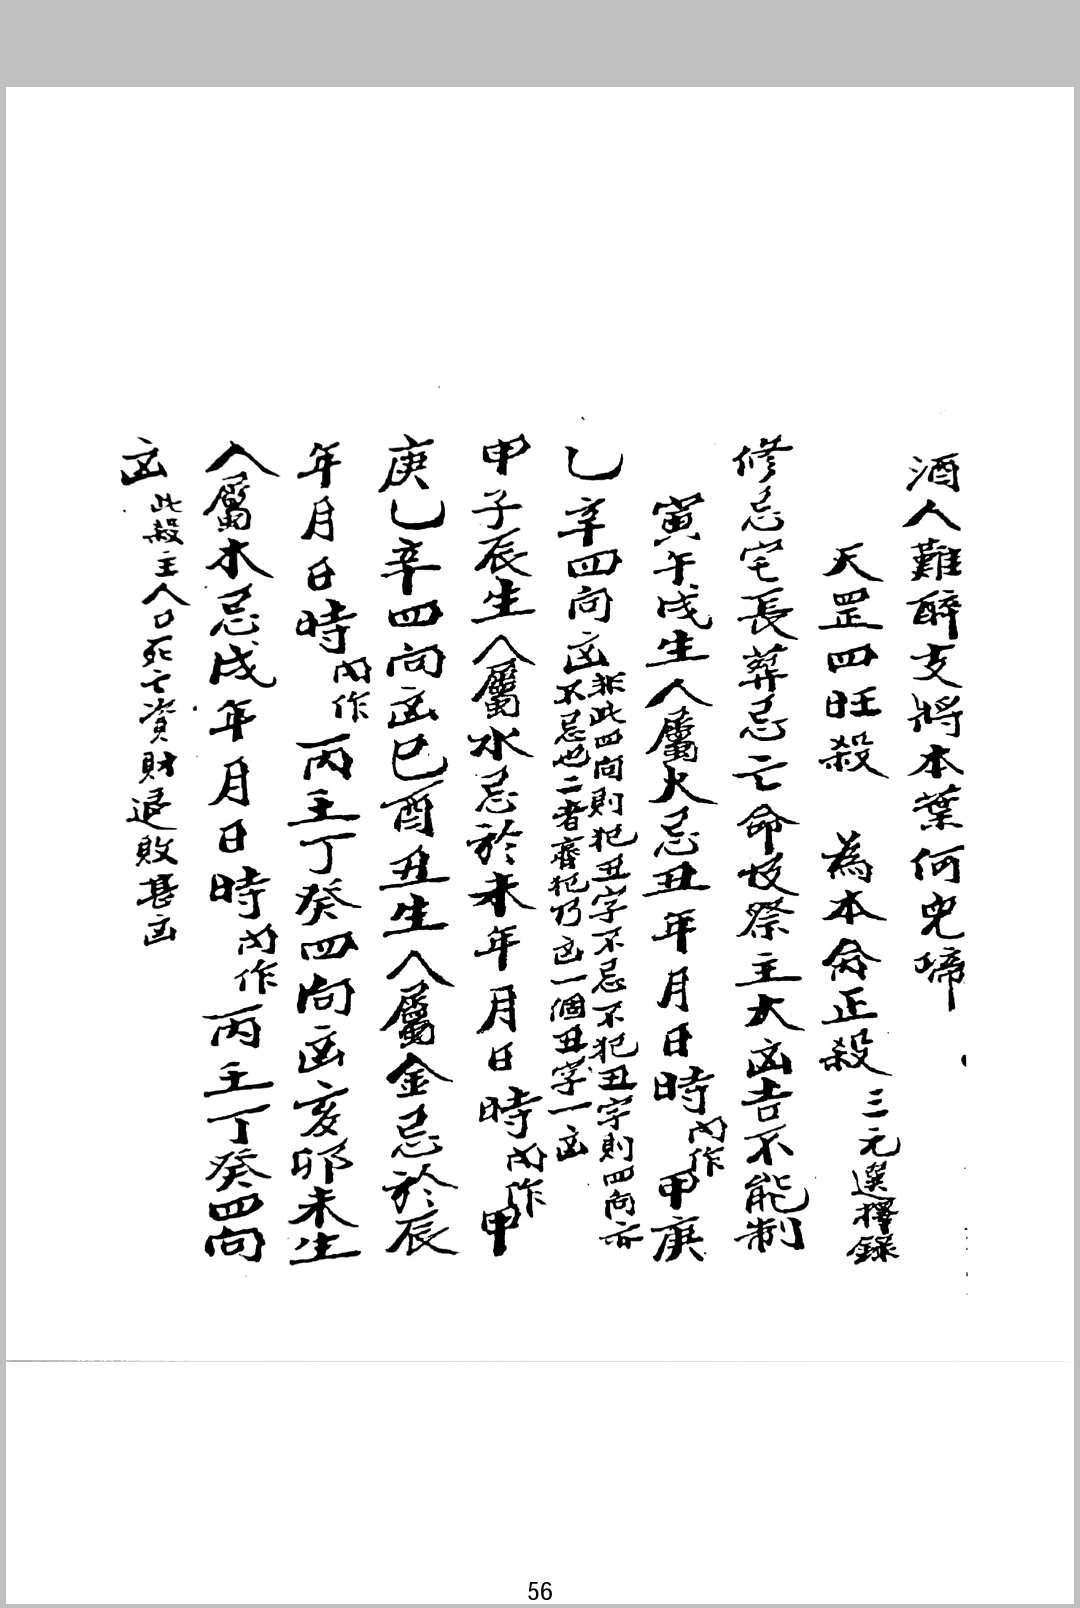 酒人難醉支將本葉何兜啼
天罡四旺殺 為本命正殺 三元選擇錄
修忌宅長葬忌亡命忮祭主大凶吉不能制
寅午戌生人屬火忌丑年月日時內作甲庚
乙辛四向凶非此四向則犯丑字不忌不犯丑字則四向亦
不忌也二者齊犯乃凶一個丑字一凶
甲子辰生人屬水忌於未年月日時內作甲
庚乙辛四向凶巳酉丑生人屬金忌於辰
年月日時內作丙壬丁癸四向凶亥卯未生
人屬木忌戌年月日時內作丙壬丁癸四向
凶此殺主人口死亡資財退敗甚凶
56